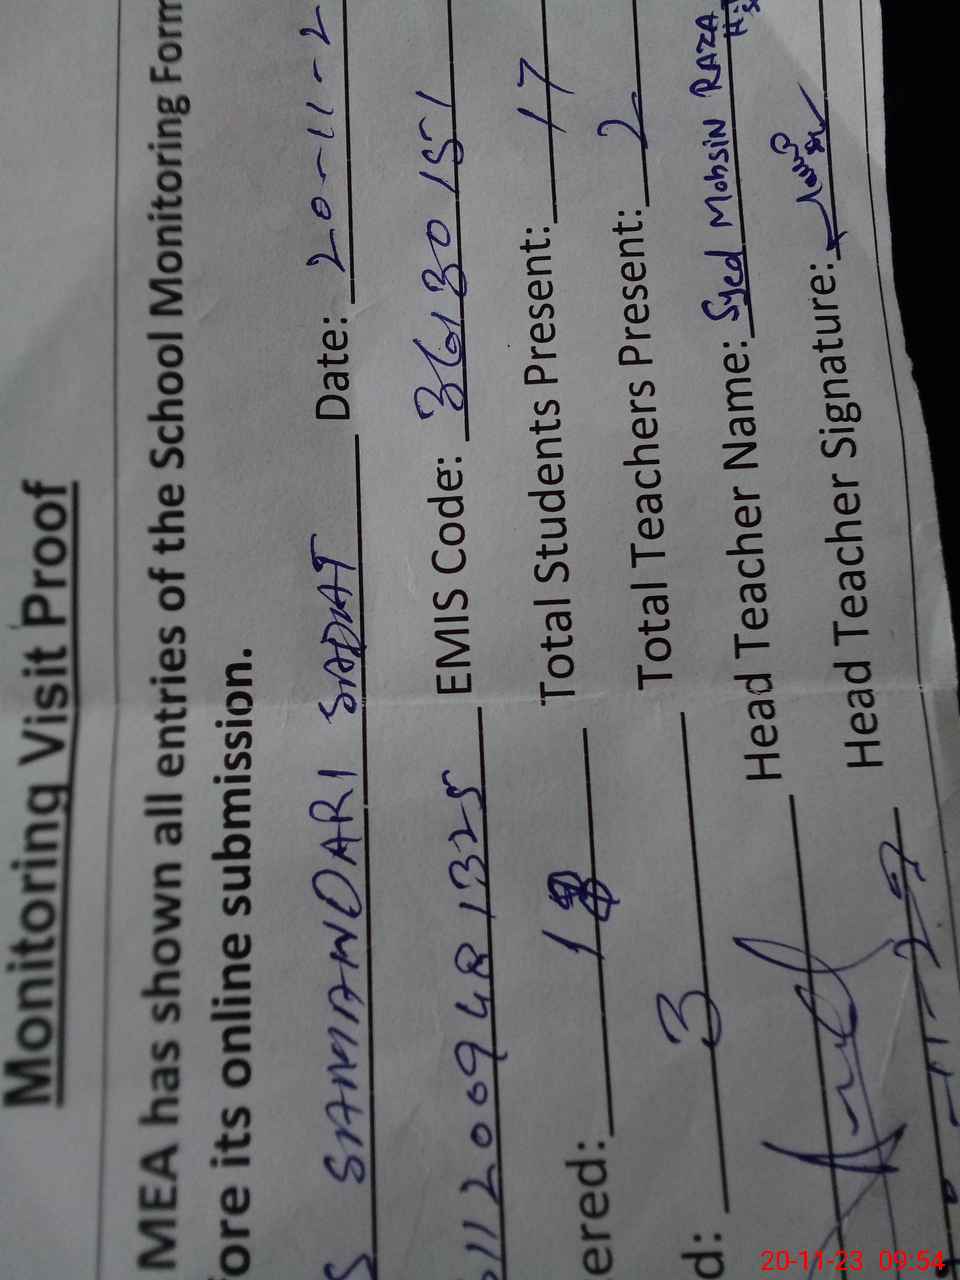 Monitoring Visit Proof
MEA has shown all entries of the School Monitoring Form
fore its online submission.
S SAMANDARI SADAT Date: 20-11-2
0112009481325 EMIS Code: 36130151
ered: 18 Total Students Present: 17
d: 3 Total Teachers Present: 2
Head Teacher Name: Syed Mohsin RAZA
Head Teacher Signature:
20-11-23 09:54